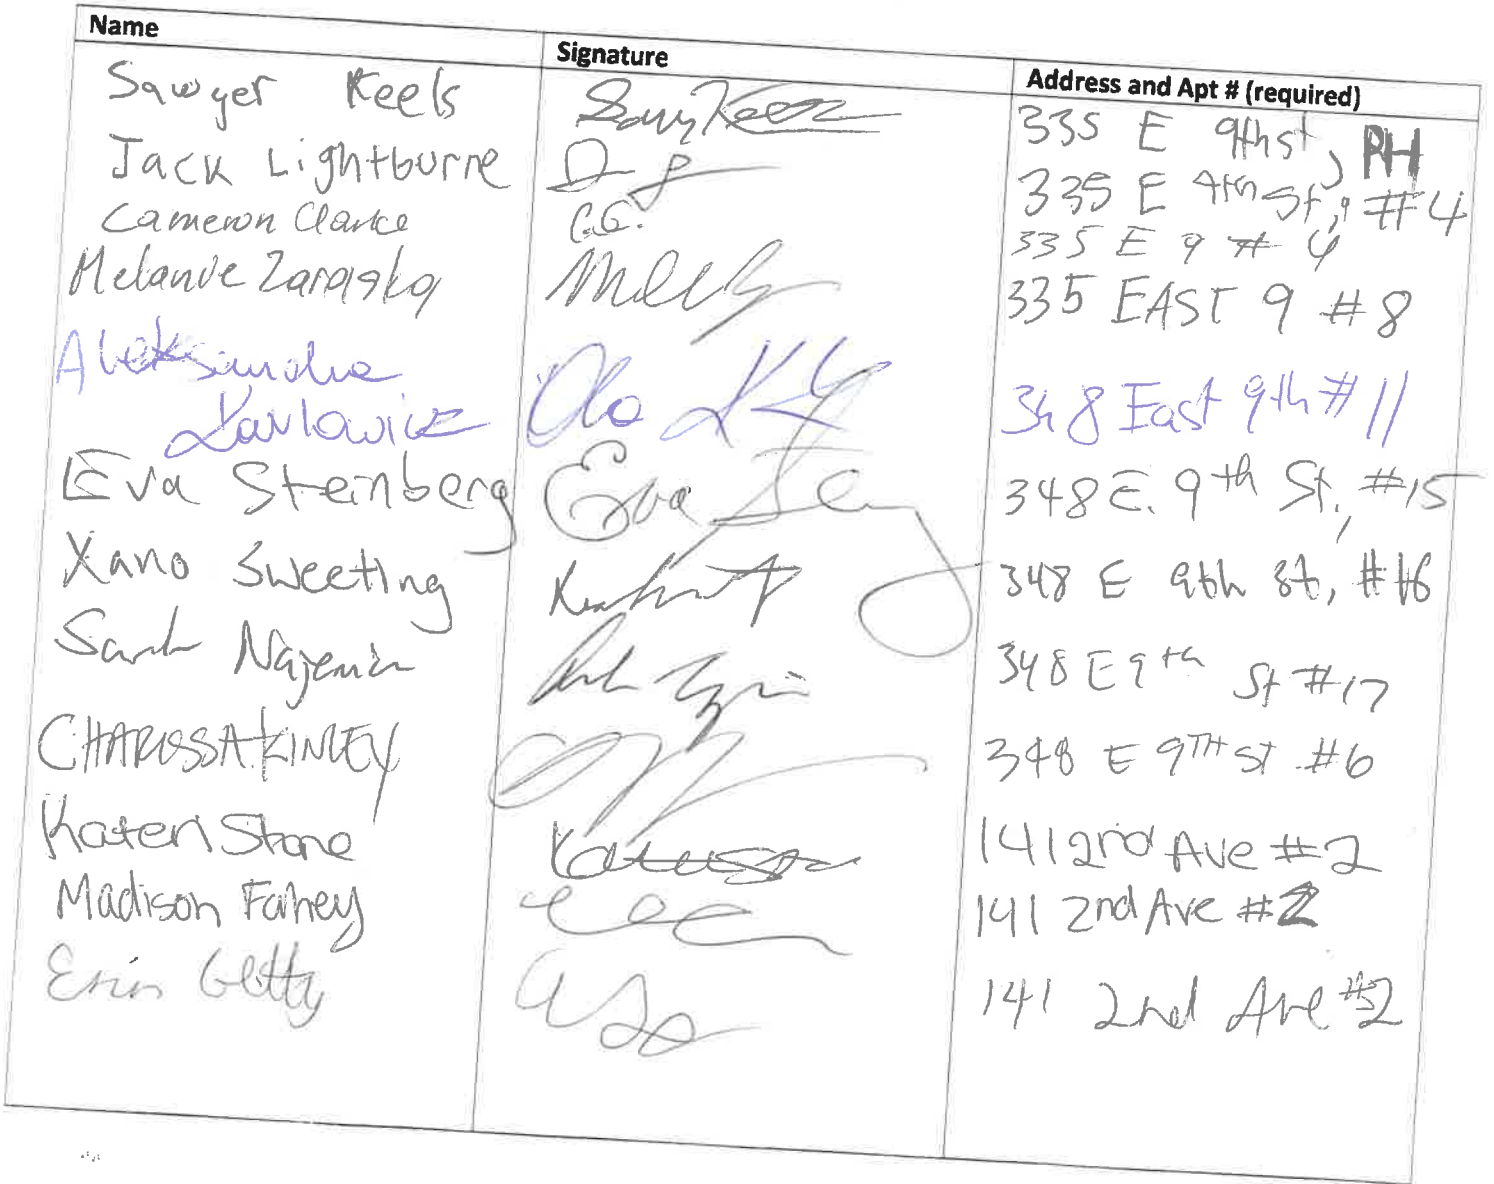 Name Signature Address and Apt # (required)
Sawyer Keels 335 E 9th st, PH
Jack Lightburne 335 E 9th St, #4
Cameron Clarke C.C. 335 E 9 # 4
Melanie 335 EAST 9 #8
Aleksandra
348 East 9th #11
Eva Steinberg Eva 348 E. 9th St., #15
Xano Sweeting 348 E 9th St, #16
Sarah 348 E 9th St #17
CHARISSA KINLEY 348 E 9TH ST #6
Kateri Stone 141 2nd Ave #2
Madison Fahey 141 2nd Ave #2
Erin Getty 141 2nd Ave #2